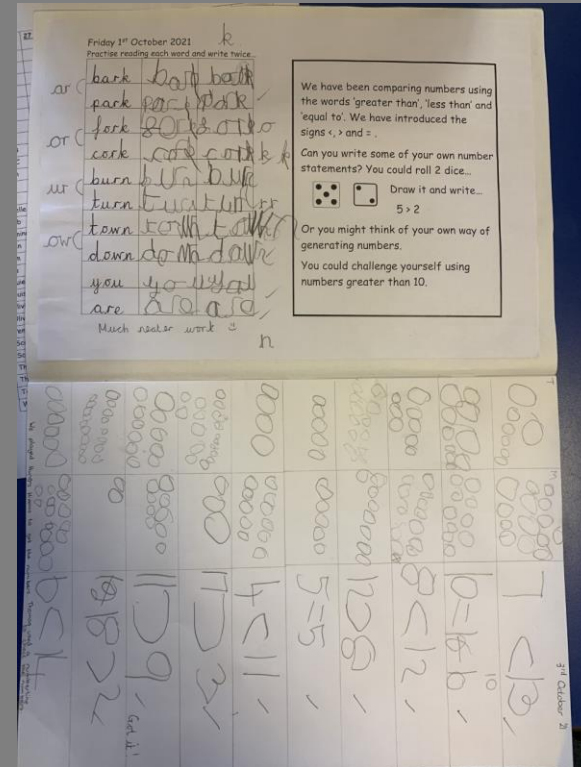 Friday 1st October 2021
k
Practise reading each word and write twice...
ar
bark bark bark
park park park
or
fork fork fork o
cork cork cork k k
ur
burn burn burn
turn turn turn rr
ow
town town town
down down down
you you you
are are are
Much neater work
n
We have been comparing numbers using
the words 'greater than', 'less than' and
'equal to'. We have introduced the
signs <, > and = .
Can you write some of your own number
statements? You could roll 2 dice...
Draw it and write...
5 > 2
Or you might think of your own way of
generating numbers.
You could challenge yourself using
numbers greater than 10.
3rd October 21
T M
7 < 13
10
8 < 12
12 > 8
5 = 5
4 < 11
17 > 3
11 > 9 Got it!
18 > 2
6 < 14